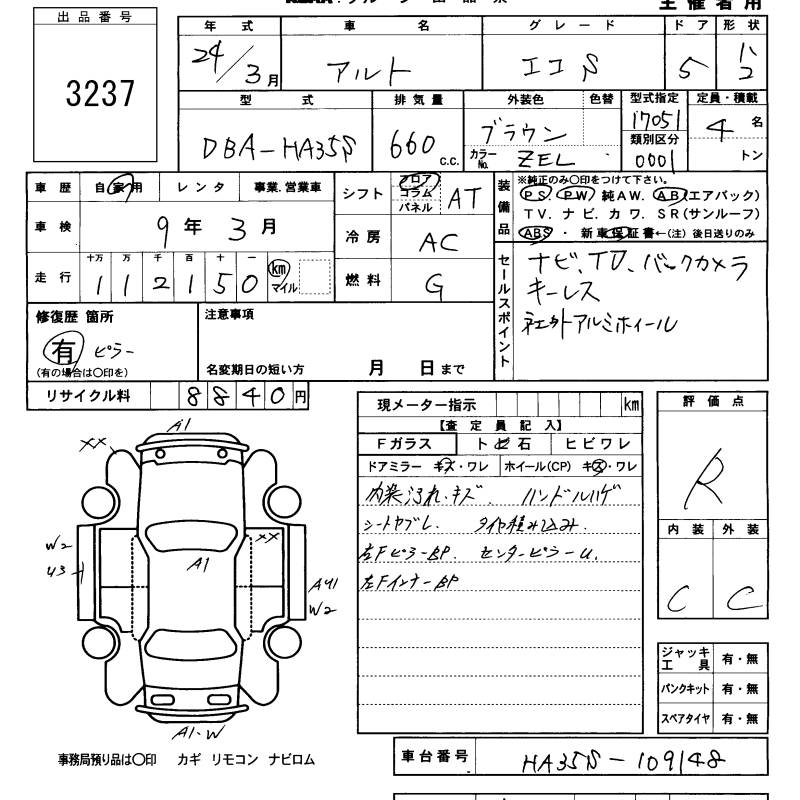 主催者用
出品番号
3237
年式 車名 グレード ドア 形状
24/3月 アルト エコS 5 ハ2
型式 排気量 外装色 色替 型式指定 定員・積載
DBA-HA35S 660 c.c. ブラウン 17051 4名
カラーNo. ZEL 類別区分 0001 トン
車歴 自家用 レンタ 事業.営業車
シフト フロア コラム パネル AT
車検 9年3月
冷房 AC
走行 十万 万 千 百 十 一
112150 km マイル
燃料 G
装備品 ※純正のみ〇印をつけて下さい。
PS. PW 純AW. AB(エアバック)
TV. ナビ. カワ. SR(サンルーフ)
ABS ・ 新車保証書←(注) 後日送りのみ
セールスポイント
ナビ、TV、バックカメラ
キーレス
社外アルミホイール
修復歴 箇所
有 ピラー
(有の場合は〇印を)
注意事項
名変期日の短い方 月 日まで
リサイクル料 8840円
現メーター指示 km
【査定員記入】
Fガラス トビ石 ヒビワレ
ドアミラー キズ・ワレ ホイール(CP) キズ・ワレ
内装汚れ・キズ. ハンドルハゲ
シートヤブレ. タイヤ積み込み.
左FピラーBP. センターピラーU.
左FインナーBP
評価点
R
内装 外装
C C
ジャッキ工具 有・無
パンクキット 有・無
スペアタイヤ 有・無
A1
XX
XX
W2
U3
A1
AU1
W2
A1・W
事務局預り品は〇印 カギ リモコン ナビロム
車台番号 HA35S-109148